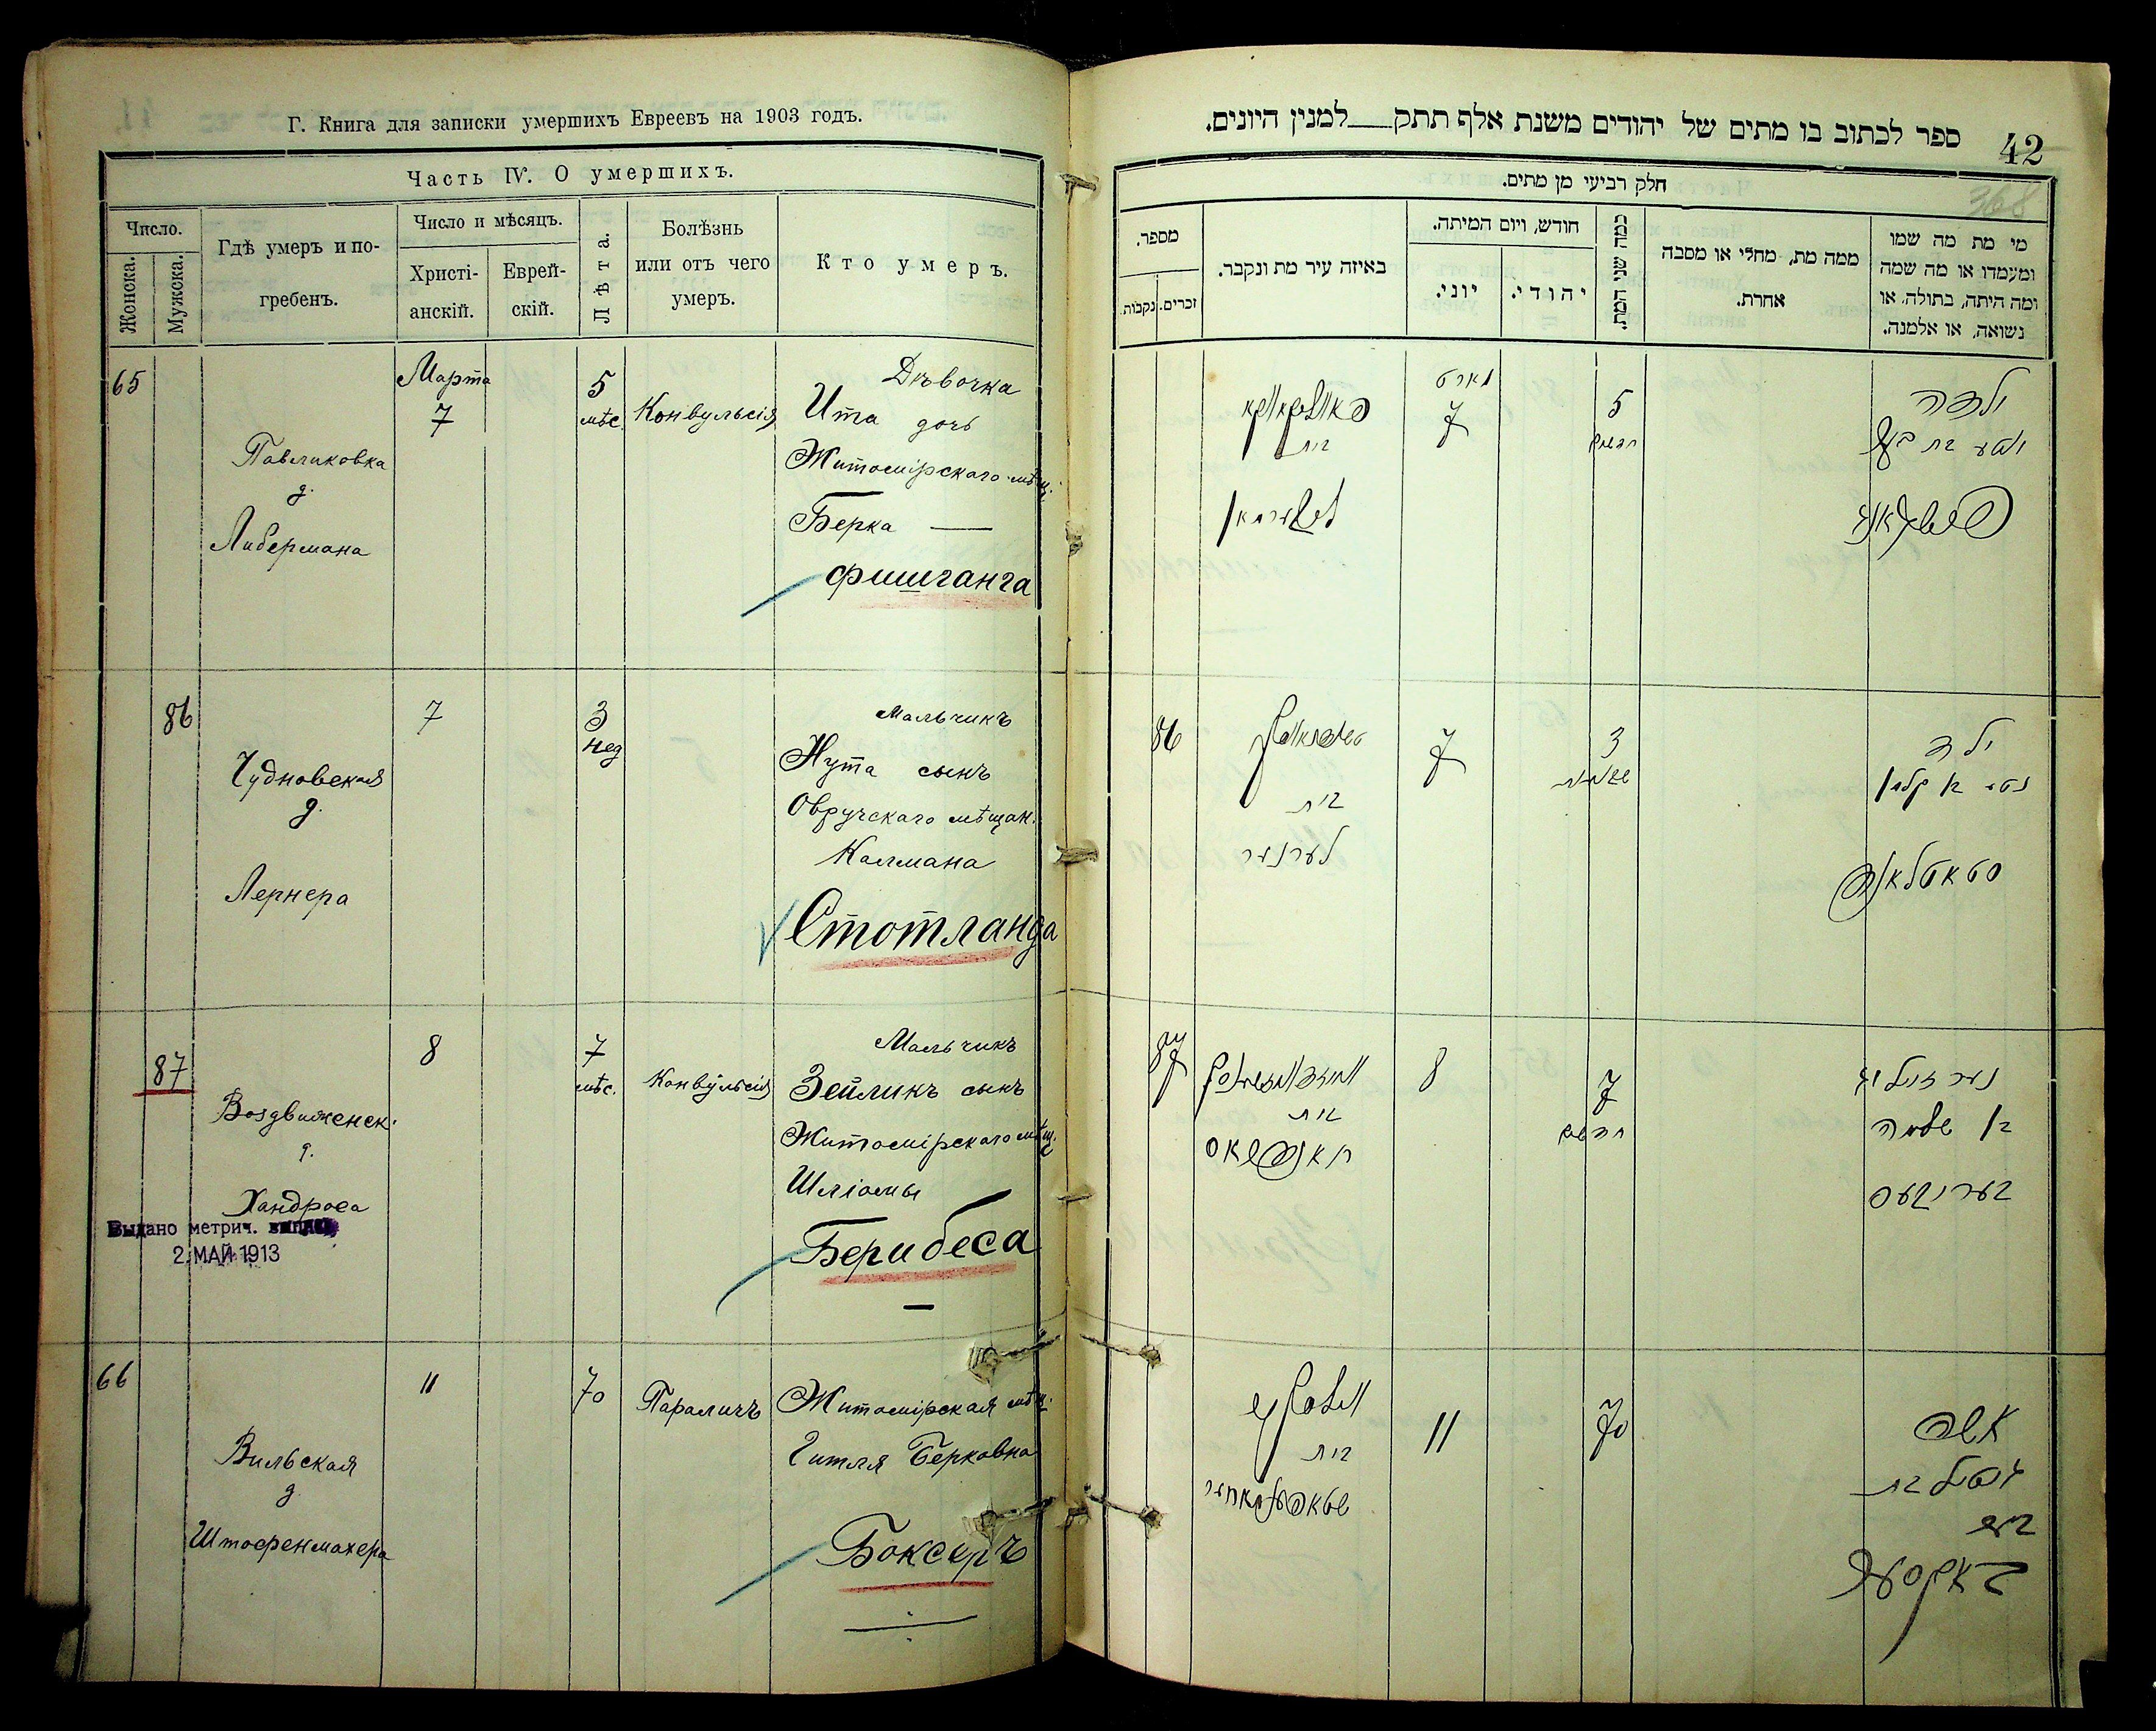 Г. Книга для записки умершихъ Евреевъ на 1903 годъ.
Часть IV. О умершихъ.
Число.
Женска.
Мужска.
Гдѣ умеръ и по-
гребенъ.
Число и мѣсяцъ.
Христі-
анскій.
Еврей-
скій.
Лѣта.
Болѣзнь
или отъ чего
умеръ.
Кто умеръ.
65
Павликовка
д.
Либермана
Марта
7
5
мѣс.
Конвульсія
Дѣвочка
Ита дочь
Житомірскаго мѣщ.
Берка —
Фишганга
86
Чудновская
д.
Лернера
7
3
нед
Мальчикъ
Нута сынъ
Овручскаго мѣщан.
Калмана
Стотланда
87
Воздвиженск.
д.
Хандроса
Выдано метрич.
2 МАЙ 1913
8
7
мѣс.
Конвульсія
Мальчикъ
Зейликъ сынъ
Житомірскаго мѣщ.
Шліомы
Берибеса
66
Вильская
д.
Штофенмахера
11
70
Параличъ
Житомірская мѣщ.
Гитля Берковна
Боксеръ
42
368
ספר לכתוב בו מתים של יהודים משנת אלף תתק למנין היונים.
חלק רביעי מן מתים.
מספר.
נקבות.
זכרים.
באיזה עיר מת ונקבר.
חודש, ויום המיתה.
יוני.
יהודי.
כמה שני המת.
ממה מת, מחלי או מסבה
אחרת.
מי מת מה שמו
ומעמדו או מה שמה
ומה היתה, בתולה, או
נשואה, או אלמנה.
בית
מארט
7
5
ילדה
86
בית
לערנער
7
3
ילד
87
בית
8
7
בן שלמה
בית
11
70
אשה
גיטל בת
בער